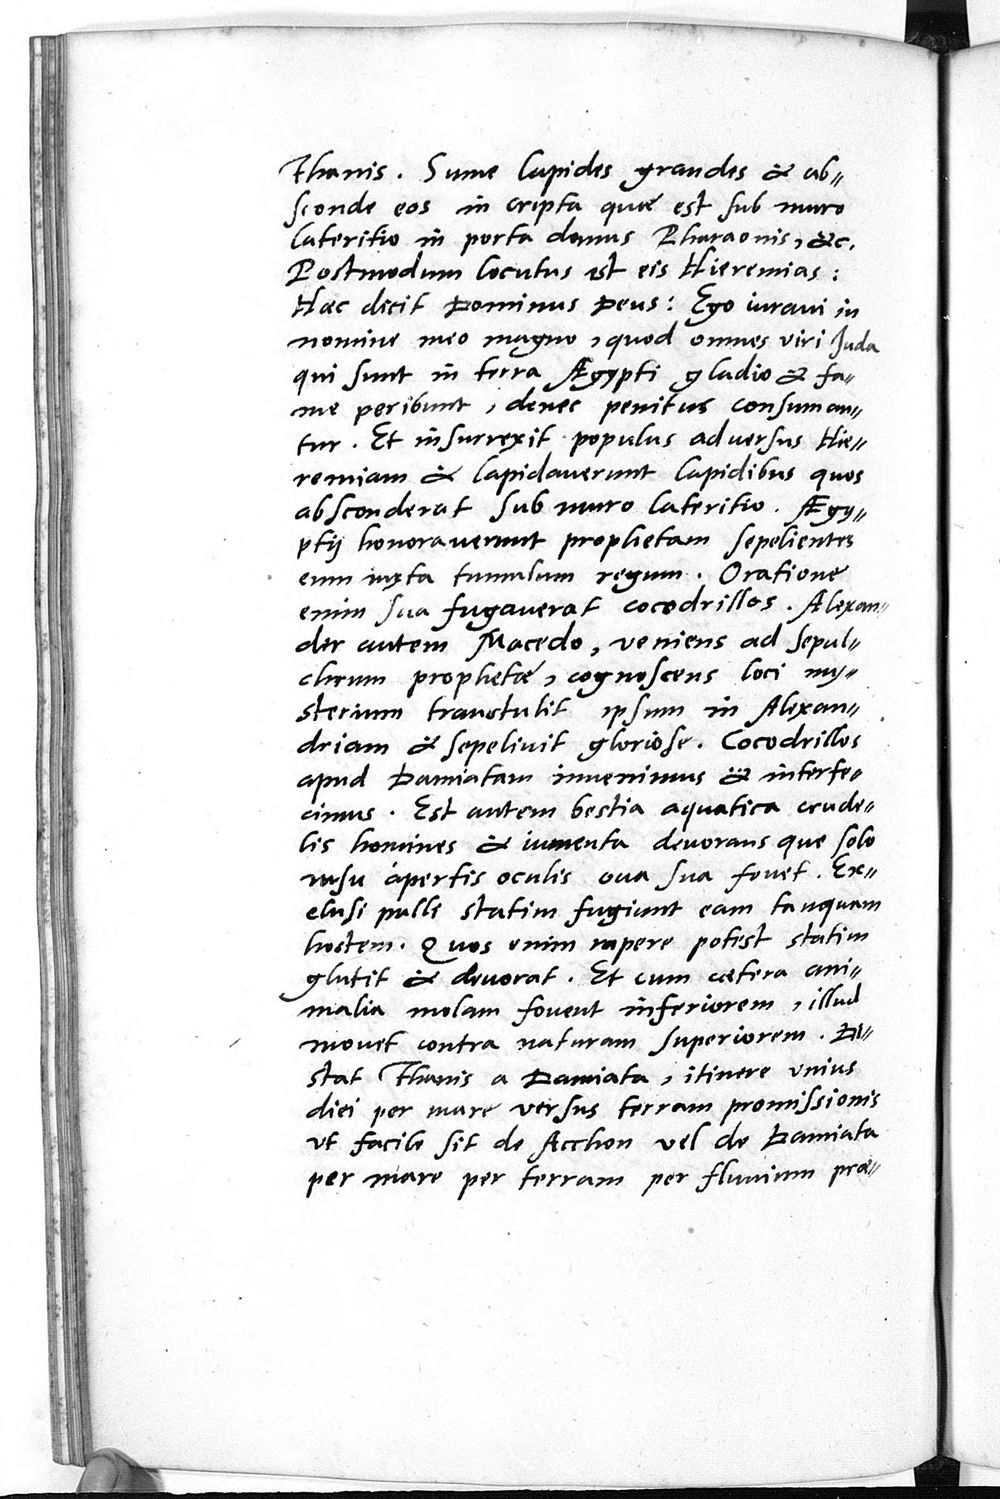 Thanis. Sume lapides grandes & ab⸗
sconde eos in cripta quae est sub muro
lateritio in porta domus Pharaonis, &c.
Postmodum locutus est eis Hieremias:
Haec dicit Dominus Deus: Ego iuravi in
nomine meo magno, quod omnes viri Juda
qui sunt in terra Ægypti gladio & fa⸗
me peribunt, donec penitus consuman⸗
tur. Et insurrexit populus adversus Hie⸗
remiam & lapidaverunt lapidibus quos
absconderat sub muro lateritio. Ægy⸗
ptij honoraverunt prophetam sepelientes
eum iuxta tumulum regum. Oratione
enim sua fugaverat cocodrillos. Alexan⸗
der autem Macedo, veniens ad sepul⸗
chrum prophetæ, cognoscens loci my⸗
sterium transtulit ipsum in Alexan⸗
driam & sepelivit gloriose. Cocodrillos
apud Damiatam invenimus & interfe⸗
cimus. Est autem bestia aquatica crude⸗
lis homines & iumenta devorans que solo
visu apertis oculis ova sua fovet. Ex⸗
clusi pulli statim fugiunt eam tanquam
hostem. Quos enim rapere potest statim
glutit & devorat. Et cum cætera ani⸗
malia molam fovent inferiorem, illud
movet contra naturam superiorem. Di⸗
stat Thanis a Damiata, itinere unius
diei per mare versus terram promissionis
ut facile sit de Acchon vel de Damiata
per mare per terram per fluvium præ⸗